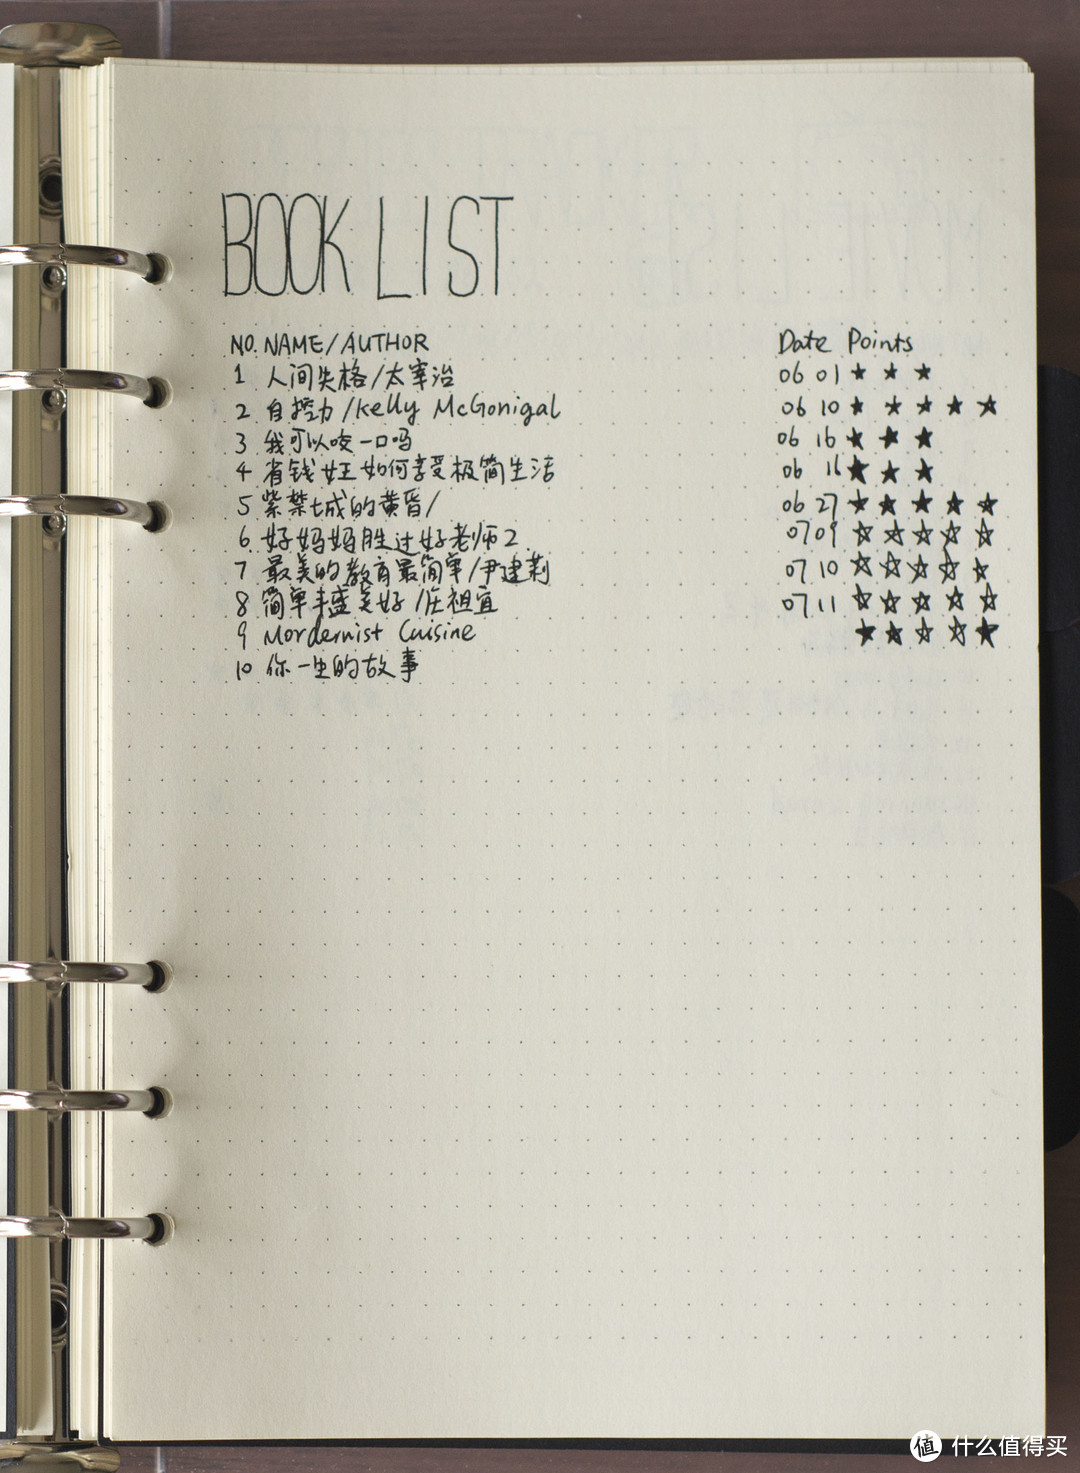 BOOK LIST
NO. NAME/AUTHOR Date Points
1 人间失格/太宰治 06 01 ★ ★ ★
2 自控力/Kelly McGonigal 06 10 ★ ★ ★ ★ ★
3 我可以咬一口吗 06 16 ★ ★ ★
4 省钱女王如何享受极简生活 06 16 ★ ★ ★
5 紫禁城的黄昏/ 06 27 ★ ★ ★ ★ ★
6 好妈妈胜过好老师2 07 09 ☆ ☆ ☆ ☆ ☆
7 最美的教育最简单/尹建莉 07 10 ☆ ☆ ☆ ☆ ☆
8 简单丰盛美好/庄祖宜 07 11 ☆ ☆ ☆ ☆ ☆
9 Mordernist Cuisine ★ ★ ☆ ☆ ★
10 你一生的故事
值 什么值得买